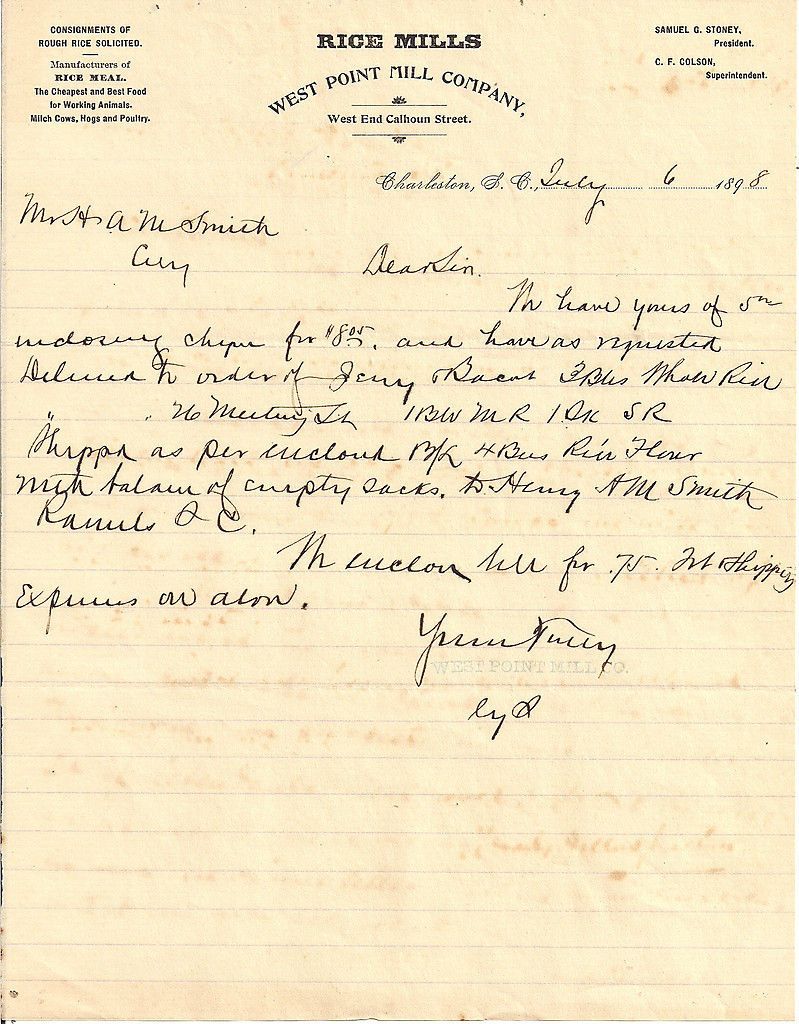 CONSIGNMENTS OF
ROUGH RICE SOLICITED.
Manufacturers of
RICE MEAL.
The Cheapest and Best Food
for Working Animals.
Milch Cows, Hogs and Poultry.
RICE MILLS
WEST POINT MILL COMPANY,
West End Calhoun Street.
SAMUEL G. STONEY,
President.
C. F. COLSON,
Superintendent.
Charleston, S. C., July 6 1898
Mr H A M Smith
City
Dear Sir.
We have yours of 5th
enclosing cheque for $8.05. and have as requested
Delivered to order of Jenny Bacot 3 Bbls Whole Rice
76 Meeting St 1 Bbl M R 1 Sk S R
Shipped as per enclosed B/L 4 Bus Rice Flour
with balance of empty sacks. to Henry A M Smith
S C.
We enclose bill for .75. Shipping
Expenses on above.
Yours Truly
WEST POINT MILL CO.
by S